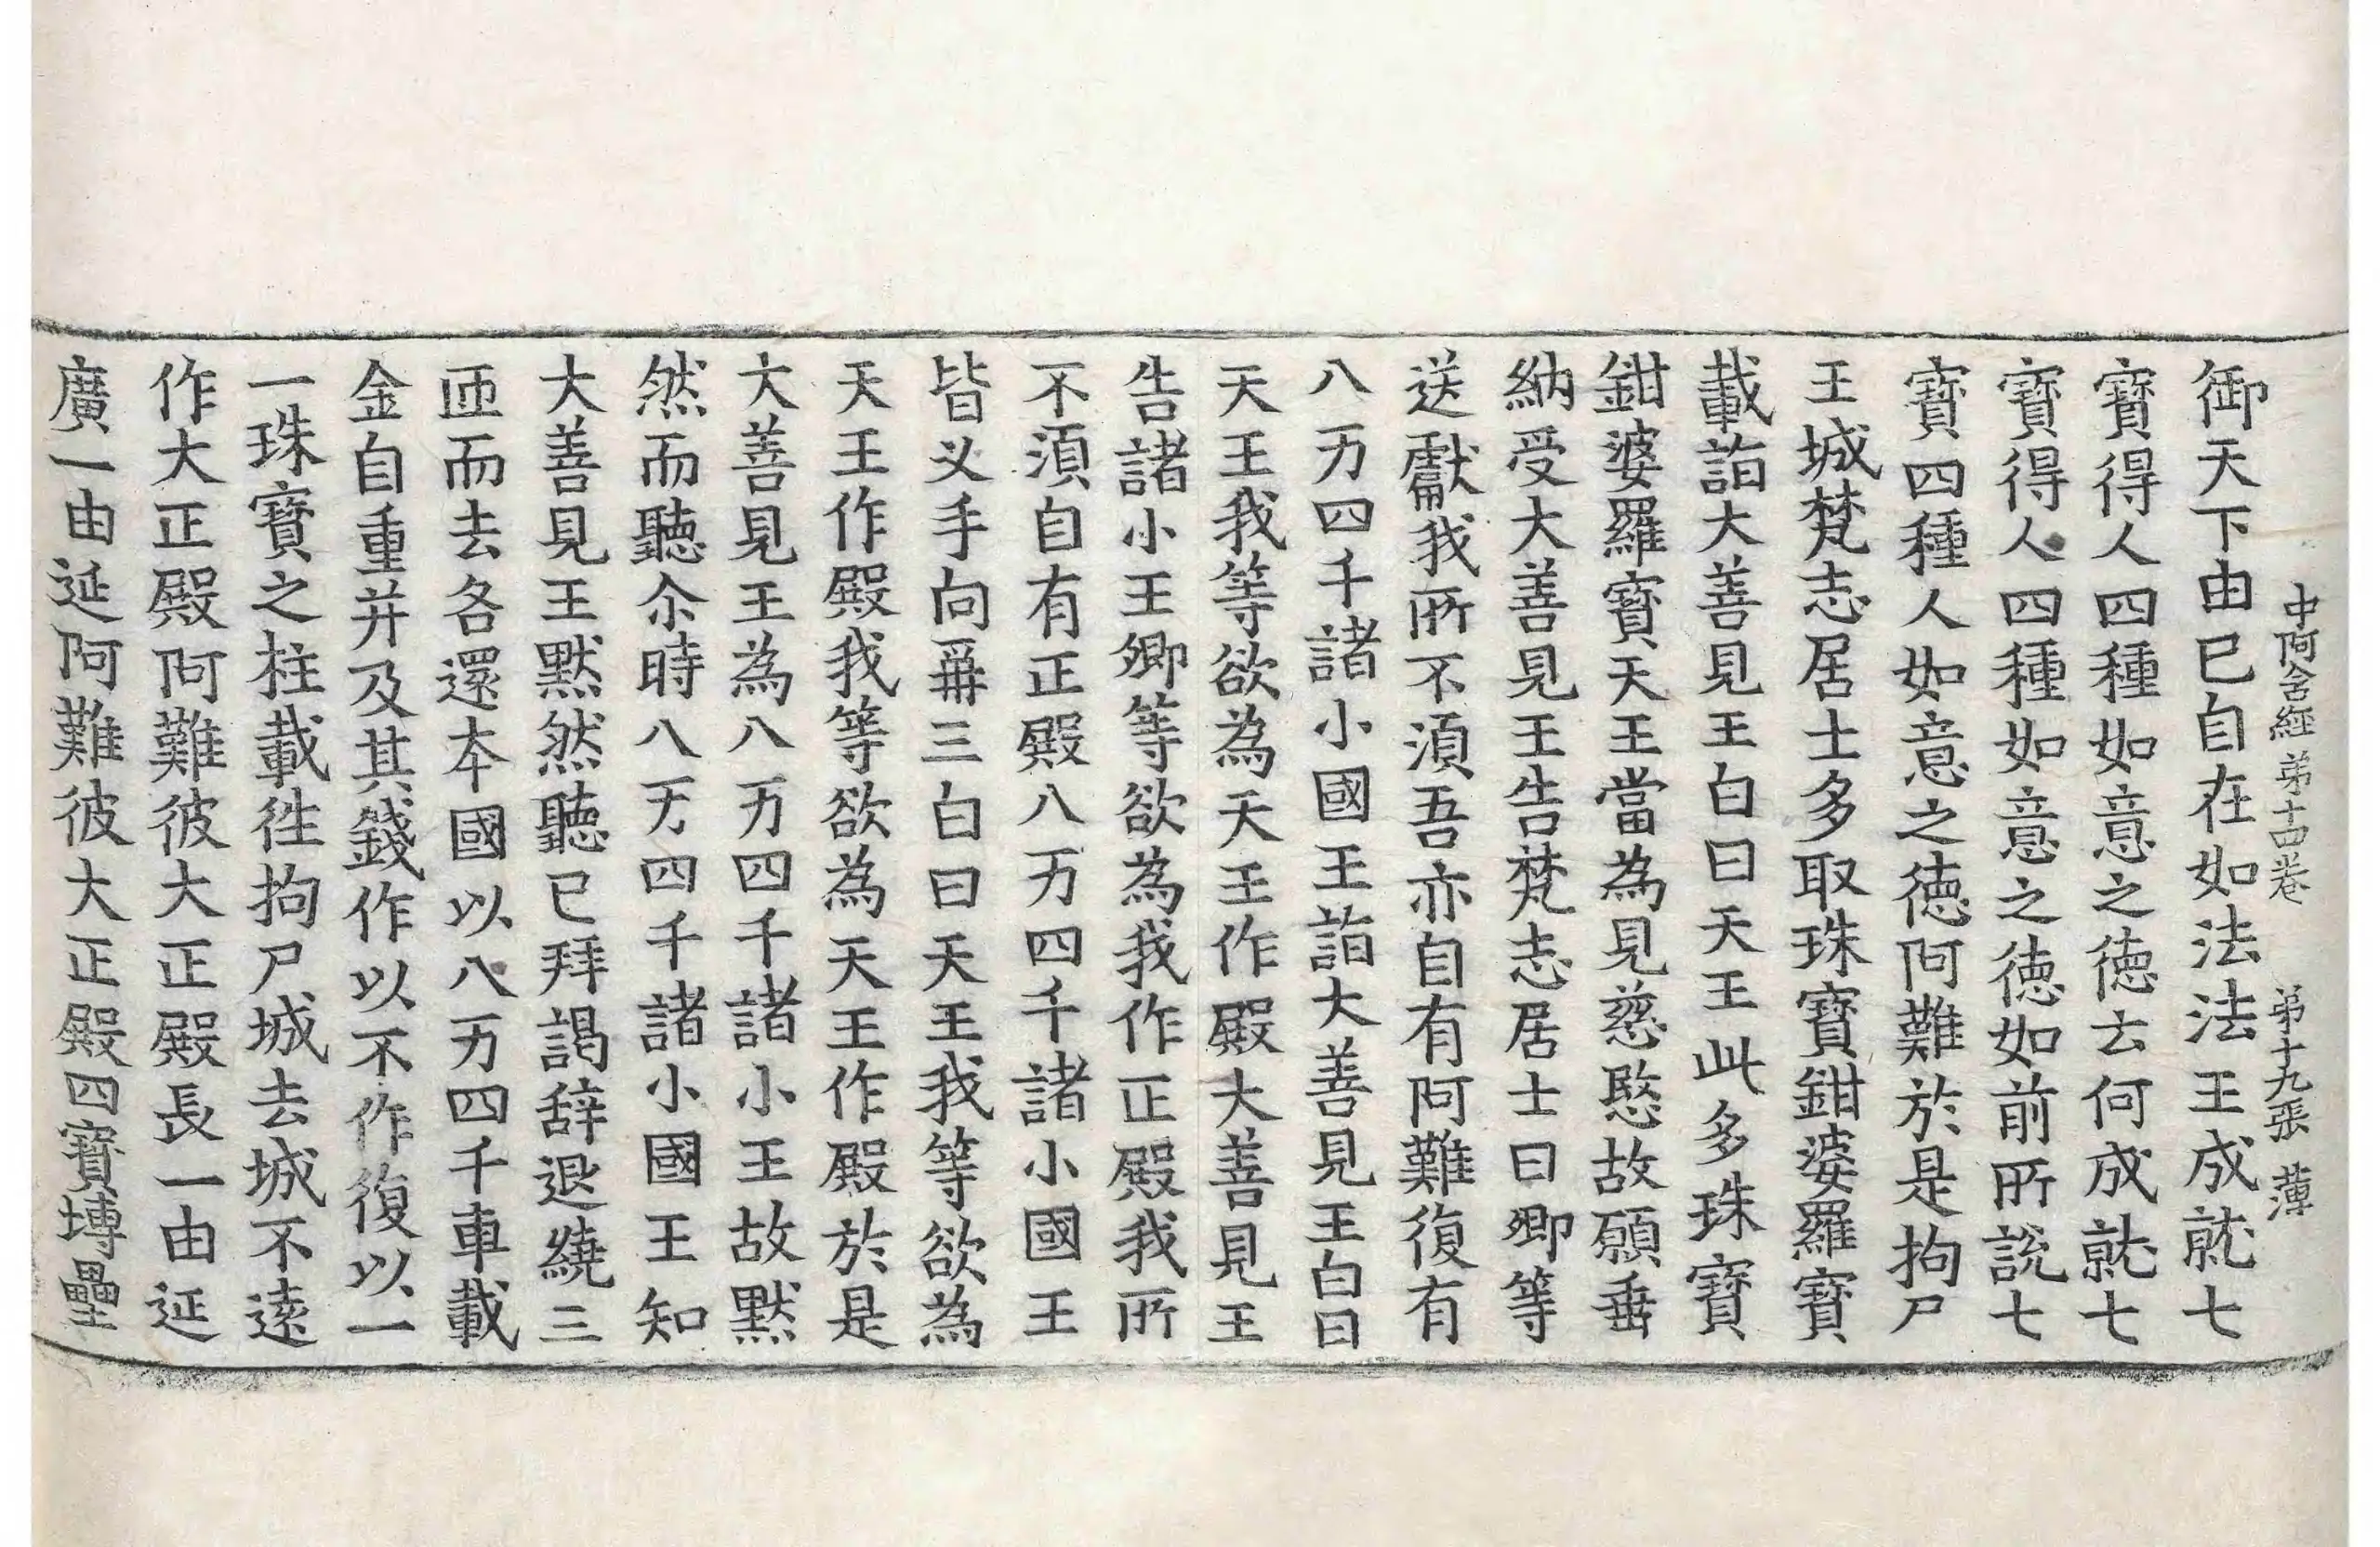 中阿含經 弟十四卷 弟十九張 薄
御天下由已自在如法法王成就七
寶得人四種如意之德云何成就七
寶得人四種如意之德如前所說七
寶四種人如意之德阿難於是拘尸
王城梵志居士多取珠寶鉗婆羅寶
載詣大善見王白曰天王此多珠寶
鉗婆羅寶天王當為見慈愍故願垂
納受大善見王告梵志居士曰卿等
送獻我所不須吾亦自有阿難復有
八万四千諸小國王詣大善見王白曰
天王我等欲為天王作殿大善見王
告諸小王卿等欲為我作正殿我所
不須自有正殿八万四千諸小國王
皆叉手向再三白曰天王我等欲為
天王作殿我等欲為天王作殿於是
大善見王為八万四千諸小王故默
然而聽尒時八万四千諸小國王知
大善見王默然聽已拜謁辞退繞三
匝而去各還本國以八万四千車載
金自重并及其錢作以不作復以一
一珠寶之柱載徃拘尸城去城不遠
作大正殿阿難彼大正殿長一由延
廣一由延阿難彼大正殿四寶塼壘